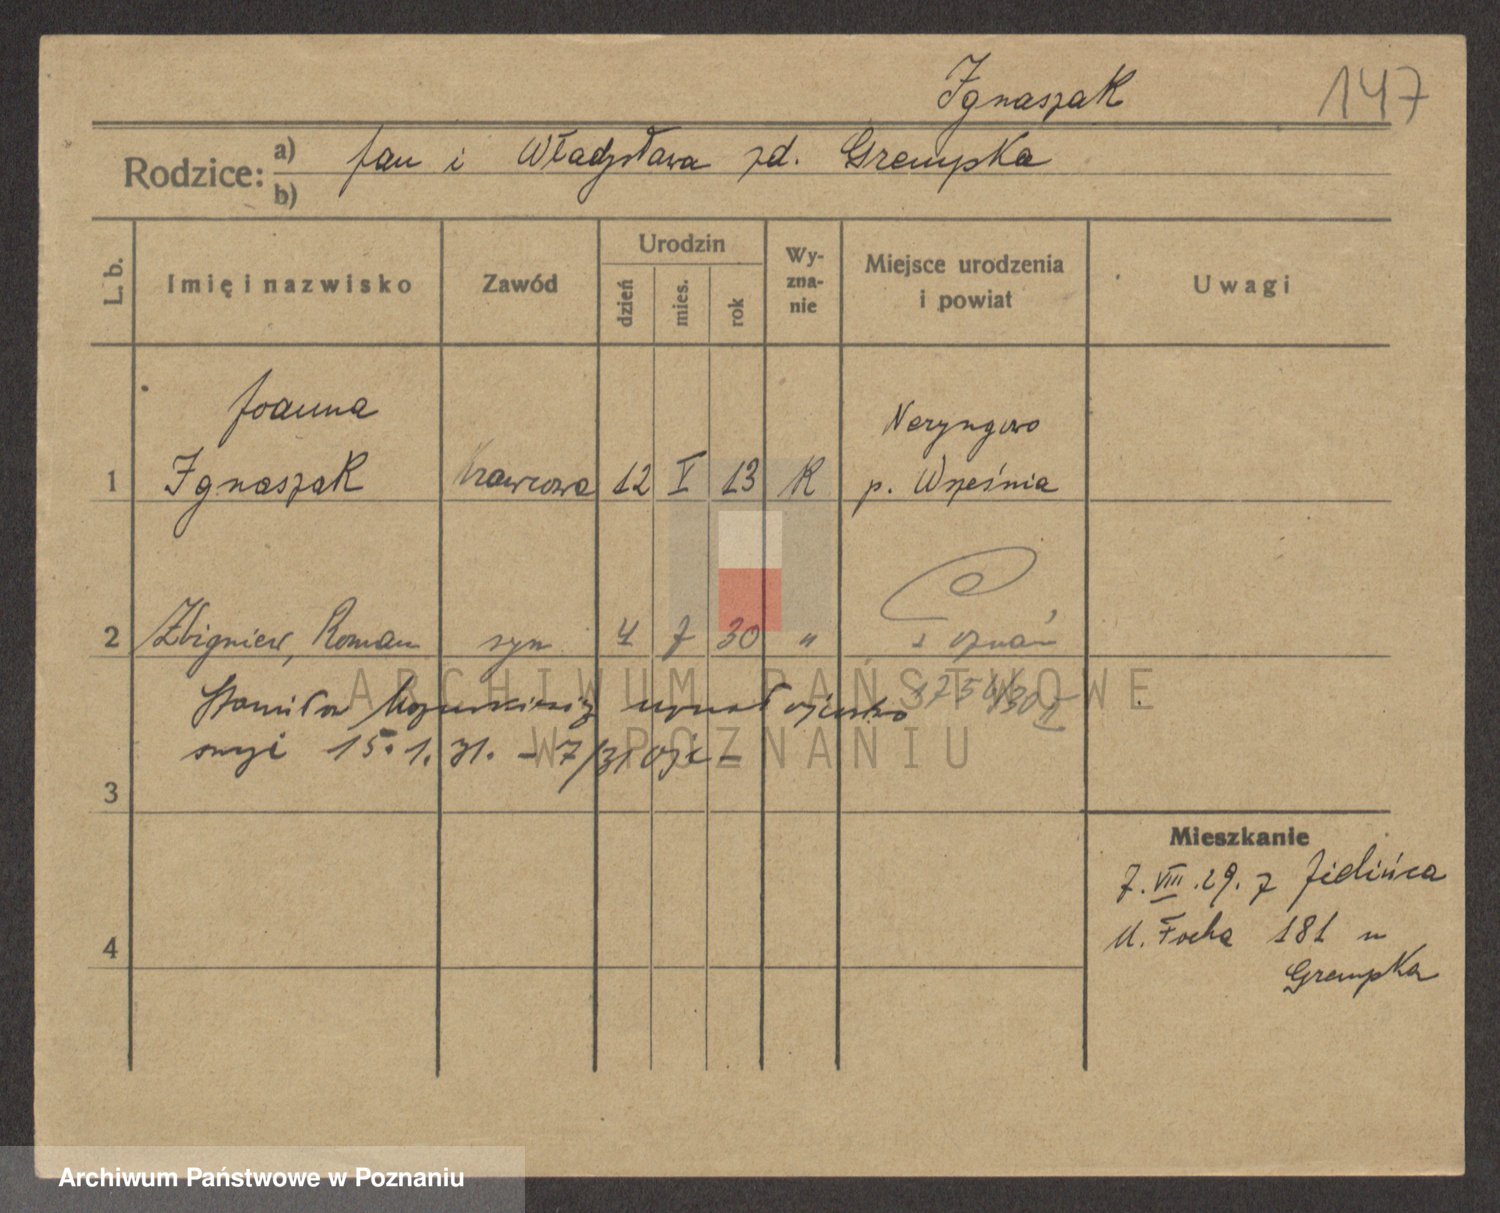 Ignaszak
147
Rodzice: a) Jan i Władysława zd. Grempka
b)
L. b.
Imię i nazwisko
Zawód
Urodzin
dzień
mies.
rok
Wy-
zna-
nie
Miejsce urodzenia
i powiat
Uwagi
Joanna
Neryngowo
1 Ignaszak Krawcowa 12 I 13 K p. Września
2 Zbigniew, Roman syn 4 7 30 " Poznań
Stanisław uznał ojcostwo
1754/30 II
swoje 15.1.31. – 7/31
3
Mieszkanie
7.VIII.29. z Jelińca
M. Focha 181 u
Grempka
4
ARCHIWUM PAŃSTWOWE
W POZNANIU
Archiwum Państwowe w Poznaniu